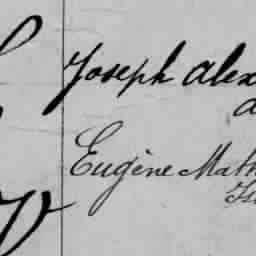 Joseph Alex
Eugène Math